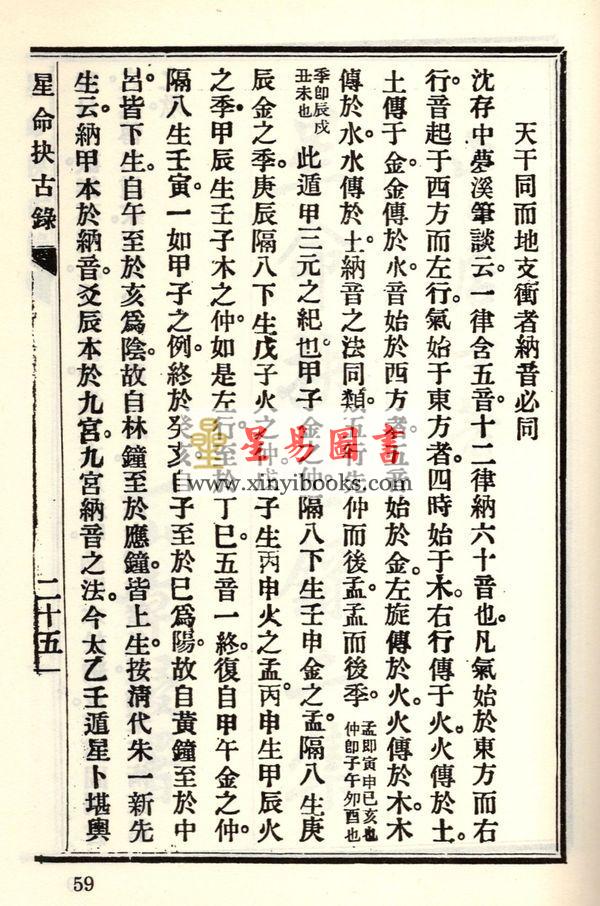 天干同而地支衝者納音必同
沈存中夢溪筆談云。一律含五音。十二律納六十音也。凡氣始於東方而右
行。音起于西方而左行。氣始于東方者。四時始于木。右行傳于火。火傳於土。
土傳于金。金傳於水。音始於西方者。五音始於金。左旋傳於火。火傳於木。木
傳於水。水傳於土。納音之法同類五行先仲而後孟。孟而後季。孟即寅申巳亥也仲即子午卯酉也
季即辰戌丑未也 此遁甲三元之紀也。甲子金之仲隔八下生壬申金之孟。隔八生庚
辰金之季。庚辰隔八下生戊子火之仲。戊子生丙申火之孟。丙申生甲辰火
之季。甲辰生壬子木之仲。如是左行至於丁巳五音一終。復自甲午金之仲。
隔八生壬寅。一如甲子之例。終於癸亥。自子至於巳爲陽。故自黃鐘至於中
呂皆下生。自午至於亥爲陰。故自林鐘至於應鐘。皆上生。按清代朱一新先
生云。納甲本於納音。爻辰本於九宮。九宮納音之法。今太乙壬遁星卜堪輿
星命抉古錄
二十五
59
星易圖書
www.xinyibooks.com